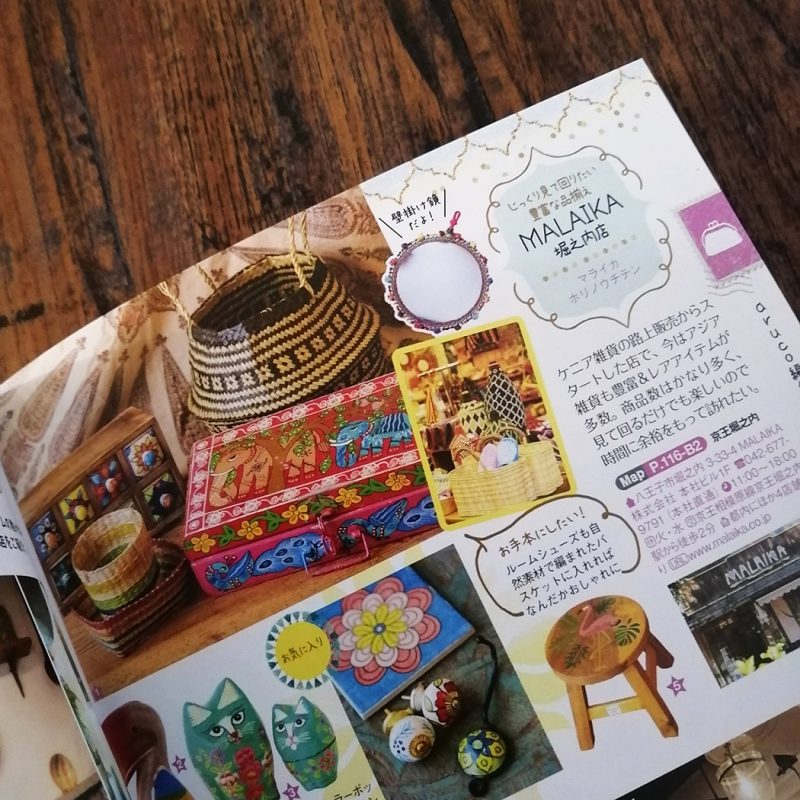 じっくり見て回りたい
豊富な品揃え
MALAIKA
堀之内店
マライカ
ホリノウチテン
壁掛け鏡
だよ！
aruco
ケニア雑貨の路上販売からス
タートした店で、今はアジア
雑貨も豊富＆レアアイテムが
多数。商品数はかなり多く、
見て回るだけでも楽しいので
時間に余裕をもって訪れたい。
Map P.116-B2 京王堀之内
八王子市堀之内 3-33-4 MALAIKA
株式会社 本社ビル1F ☎042-677-
9791（本社直通） 11:00～18:00
㊡火・水 京王相模原線京王堀之内
駅から徒歩2分 都内にほか4店舗
り URL www.malaika.co.jp
お手本にしたい！
ルームシューズも自
然素材で編まれたバ
スケットに入れれば
なんだかおしゃれに
MALAIKA
お気に入り
1
2
3
5